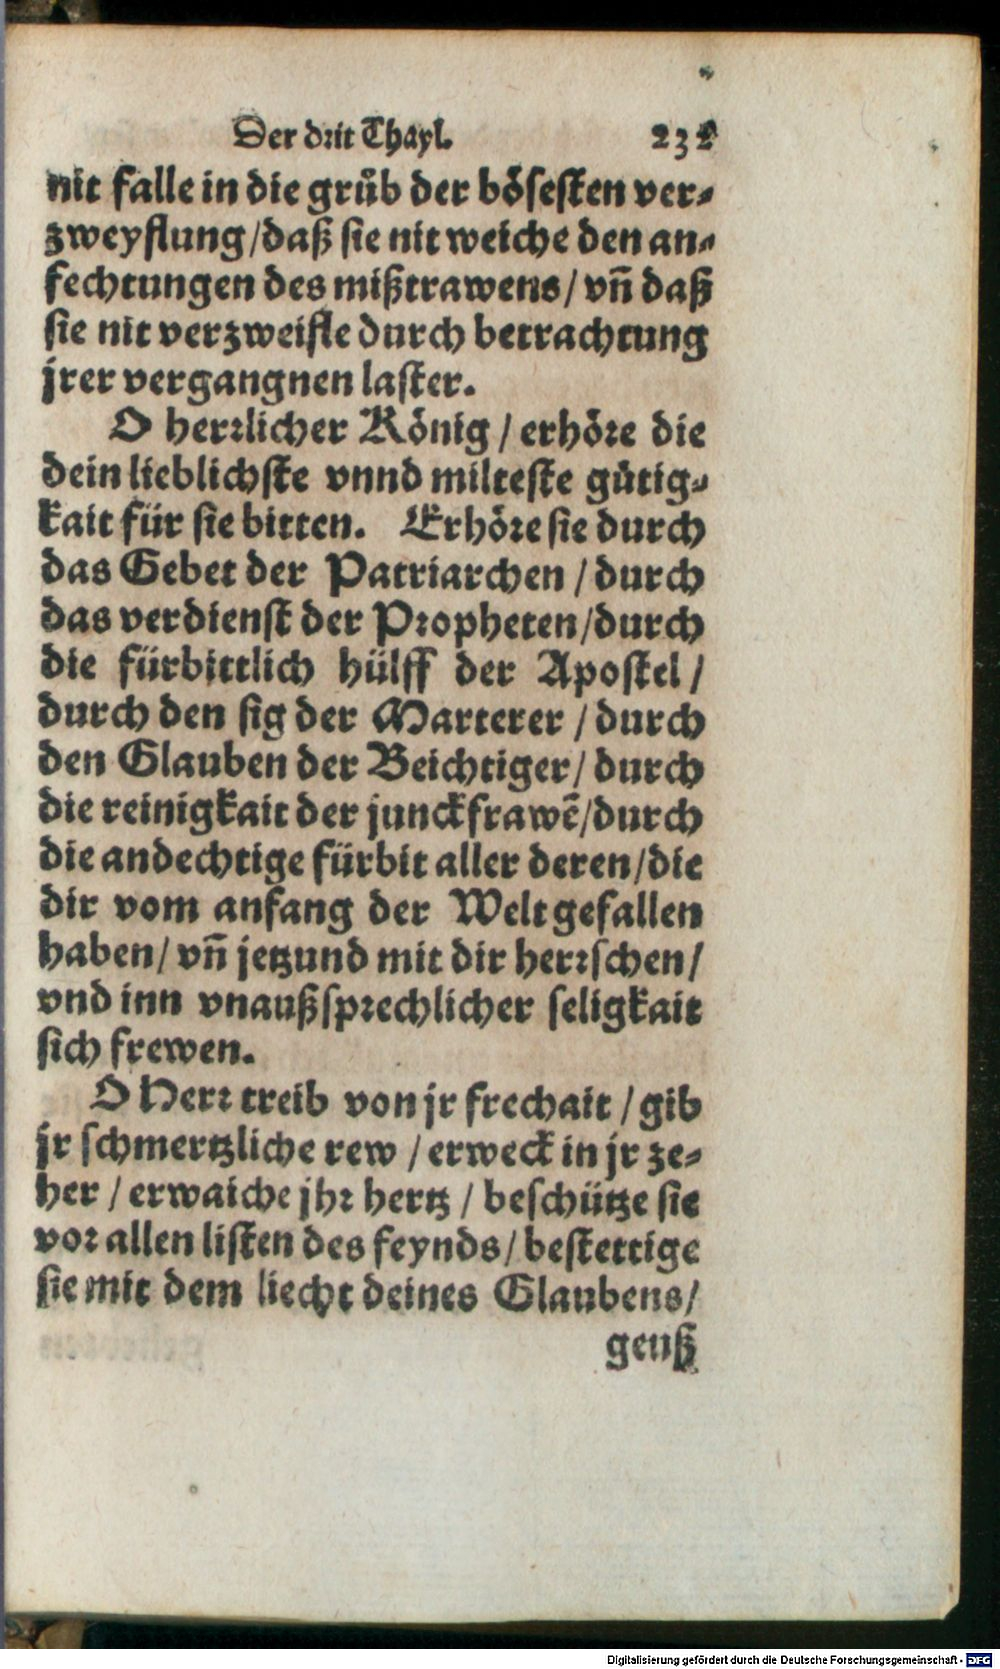 Der drit Thayl.
nit falle in die grůb der bösesten ver-
zweyflung/daß sie nit weiche den an-
fechtungen des mißtrawens/ vn̄ daß
sie nit verzweifle durch betrachtung
jrer vergangnen laster.
O herrlicher König / erhöre die
dein lieblichste vnnd milteste gůtig-
kait für sie bitten. Erhöre sie durch
das Gebet der Patriarchen / durch
das verdienst der Propheten/durch
die fürbittlich hülff der Apostel /
durch den sig der Marterer / durch
den Glauben der Beichtiger/ durch
die reinigkait der junckfrawē/durch
die andechtige fürbit aller deren/die
dir vom anfang der Welt gefallen
haben/ vn̄ jetzund mit dir herrschen/
vnd inn vnaußsprechlicher seligkait
sich frewen.
O Herr treib von jr frechait / gib
jr schmertzliche rew / erweck in jr ze-
her / erwaiche jhr hertz / beschütze sie
vor allen listen des feynds/ bestettige
sie mit dem liecht deines Glaubens/
geuß
Digitalisierung gefördert durch die Deutsche Forschungsgemeinschaft - DFG